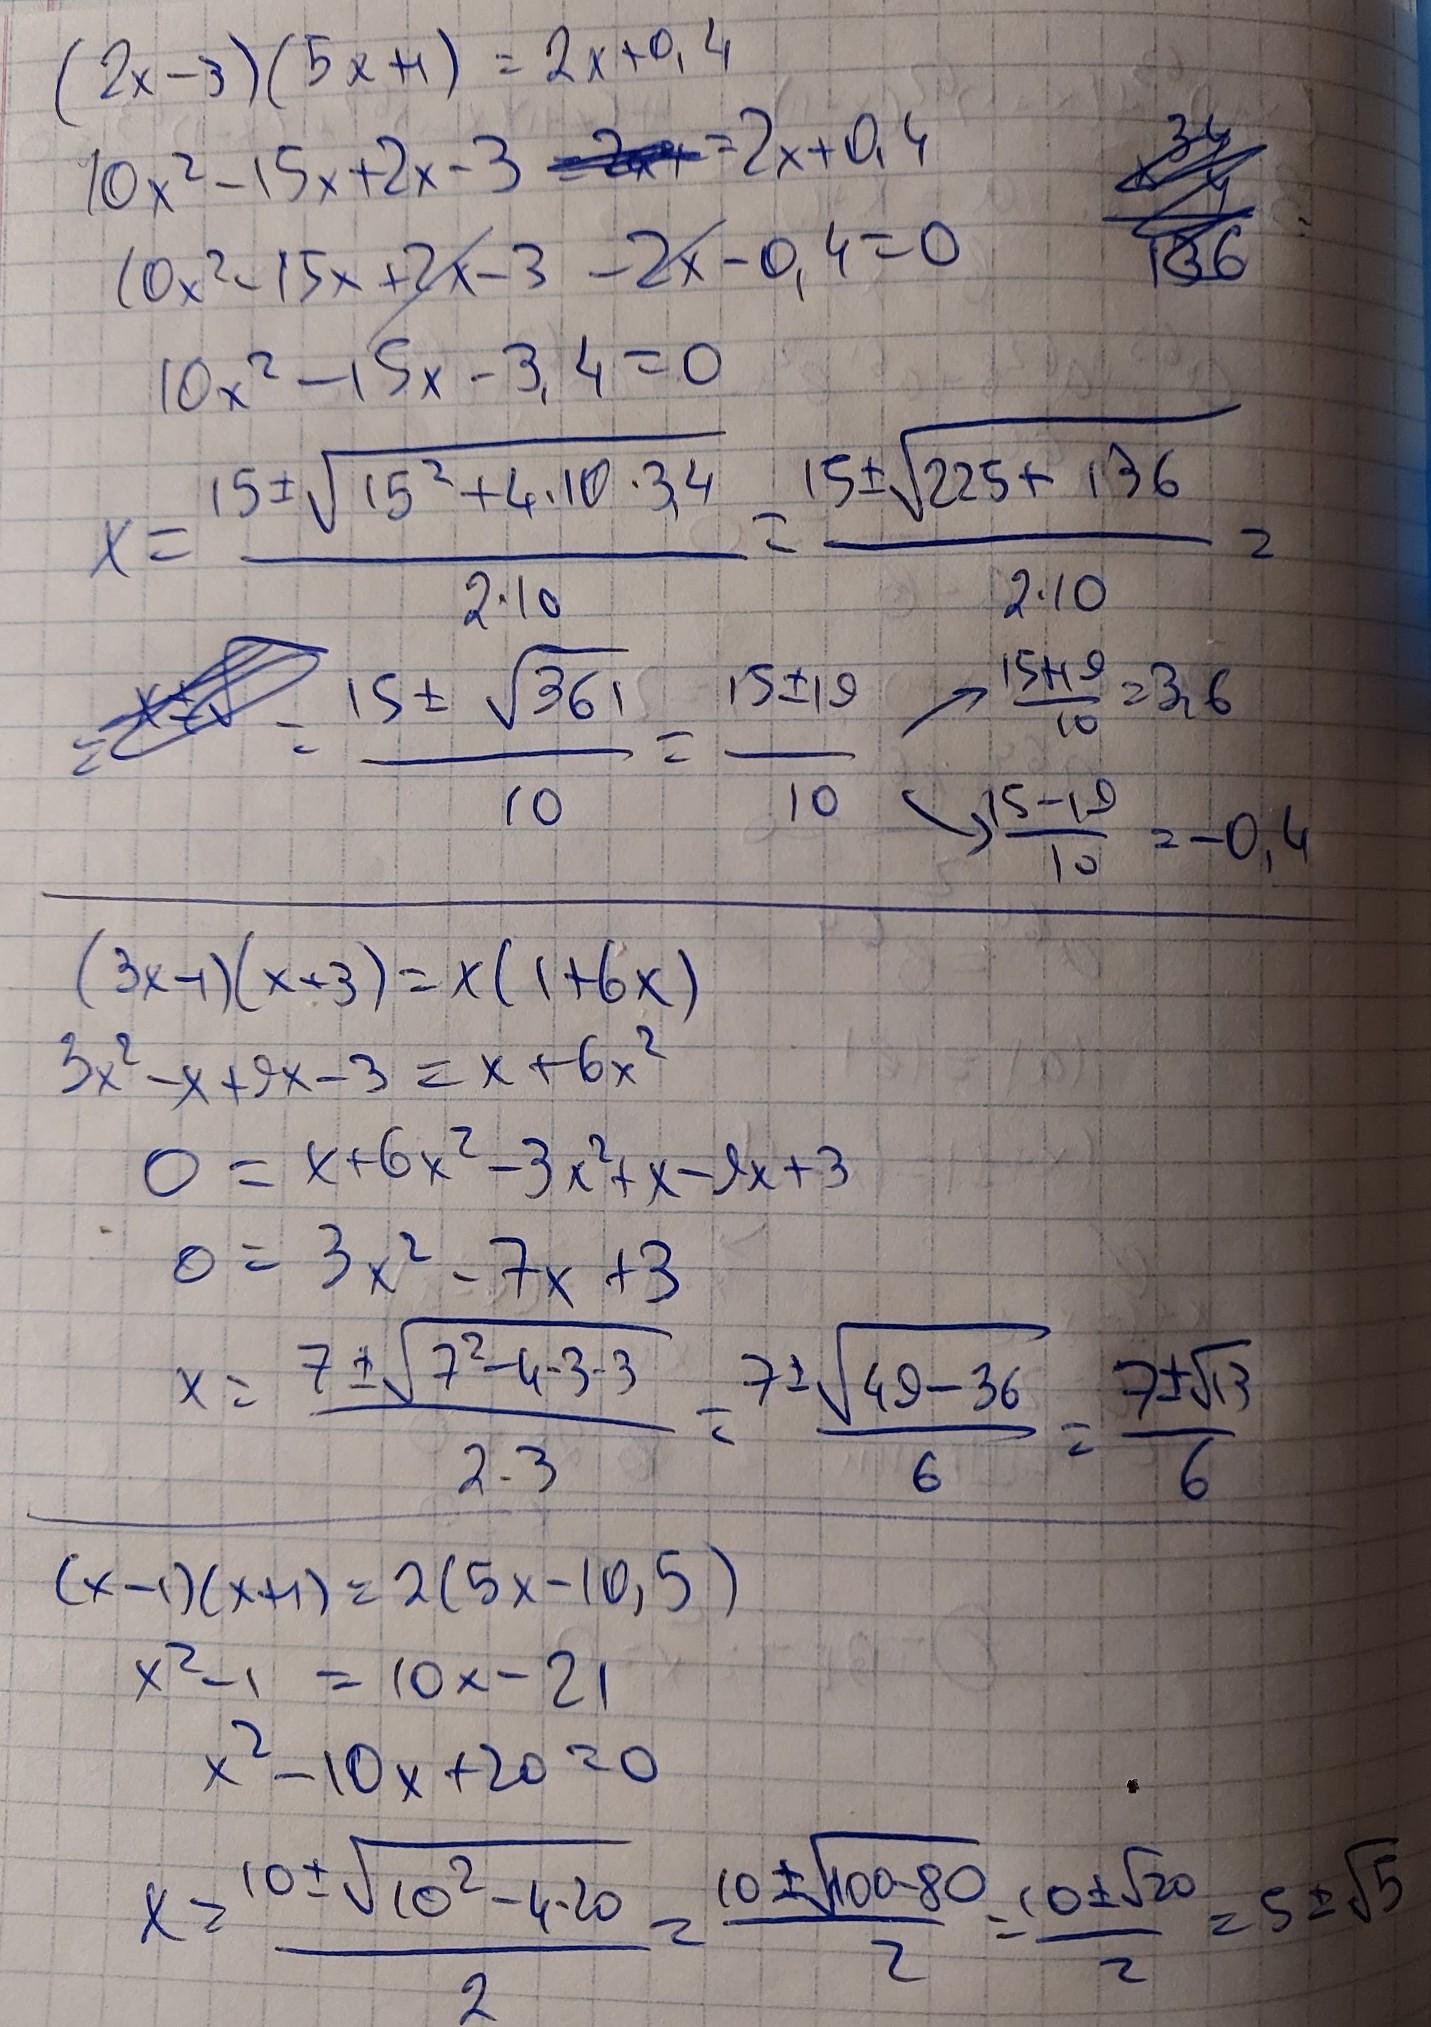 (2x-3)(5x+1) = 2x+0,4
10x²-15x+2x-3 =2x+0,4
10x²-15x+2x-3 -2x-0,4=0
10x²-15x-3,4=0
x = (15±√(15²+4·10·3,4))/(2·10) = (15±√(225+136))/(2·10) =
= = (15±√361)/10 = (15±19)/10 ↗ (15+19)/10 = 3,6
↘ (15-19)/10 = -0,4
(3x-1)(x+3) = x(1+6x)
3x²-x+9x-3 = x+6x²
0 = x+6x²-3x²+x-9x+3
0 = 3x²-7x+3
x = (7±√(7²-4·3·3))/(2·3) = (7±√(49-36))/6 = (7±√13)/6
(x-1)(x+1) = 2(5x-10,5)
x²-1 = 10x-21
x²-10x+20=0
x = (10±√(10²-4·20))/2 = (10±√(100-80))/2 = (10±√20)/2 = 5±√5